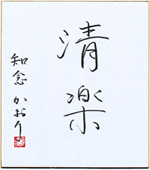 清楽
知念かおり